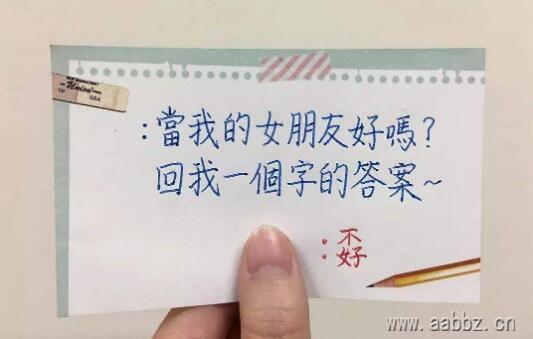 :當我的女朋友好嗎?
回我一個字的答案~
:孬
www.aabbz.cn